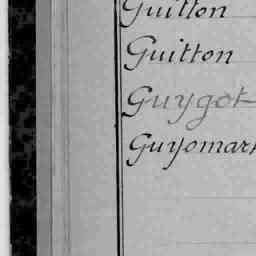 Guitton
Guitton
Guygot
Guyomar